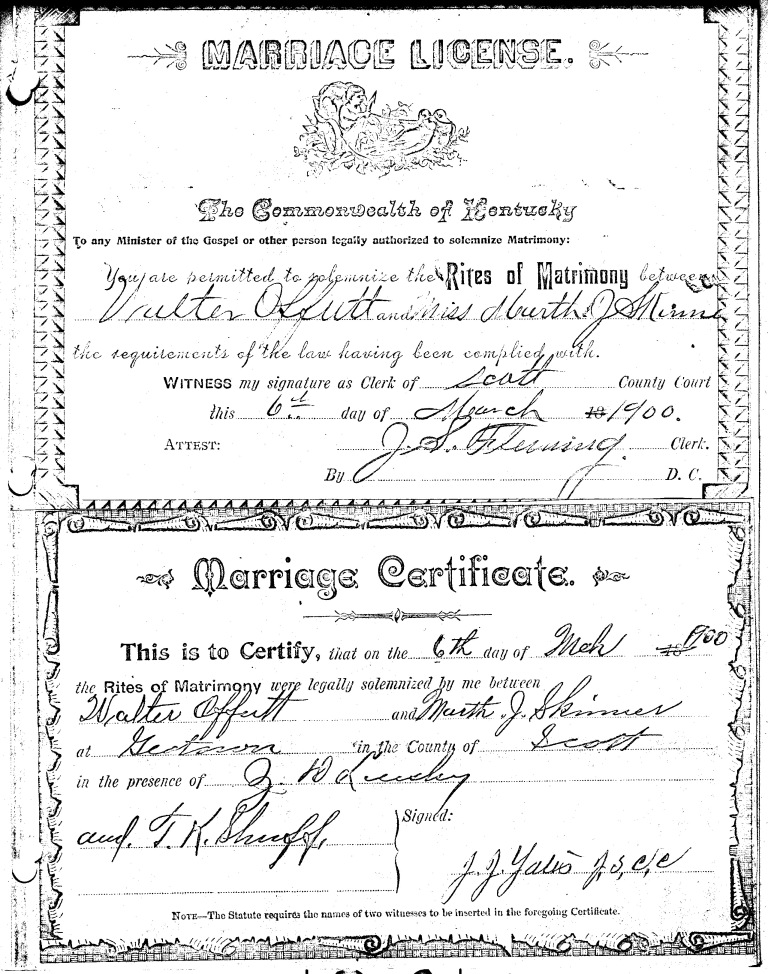 MARRIAGE LICENSE.
The Commonwealth of Kentucky
To any Minister of the Gospel or other person legally authorized to solemnize Matrimony:
You are permitted to solemnize the Rites of Matrimony between
Walter Offutt and Miss Marth. J Skinne
the requirements of the law having been complied with.
WITNESS my signature as Clerk of Scott County Court
this 6th day of March 18 1900.
ATTEST: J. S. Fleming. Clerk.
By D. C.
Marriage Certificate.
This is to Certify, that on the 6th day of Mch 18 1900
the Rites of Matrimony were legally solemnized by me between
Walter Offutt and Marth. J. Skinner
at in the County of Scott
in the presence of
and. T. K. Shuff,
Signed:
J. J. Yates J, S, C, C
NOTE—The Statute requires the names of two witnesses to be inserted in the foregoing Certificate.